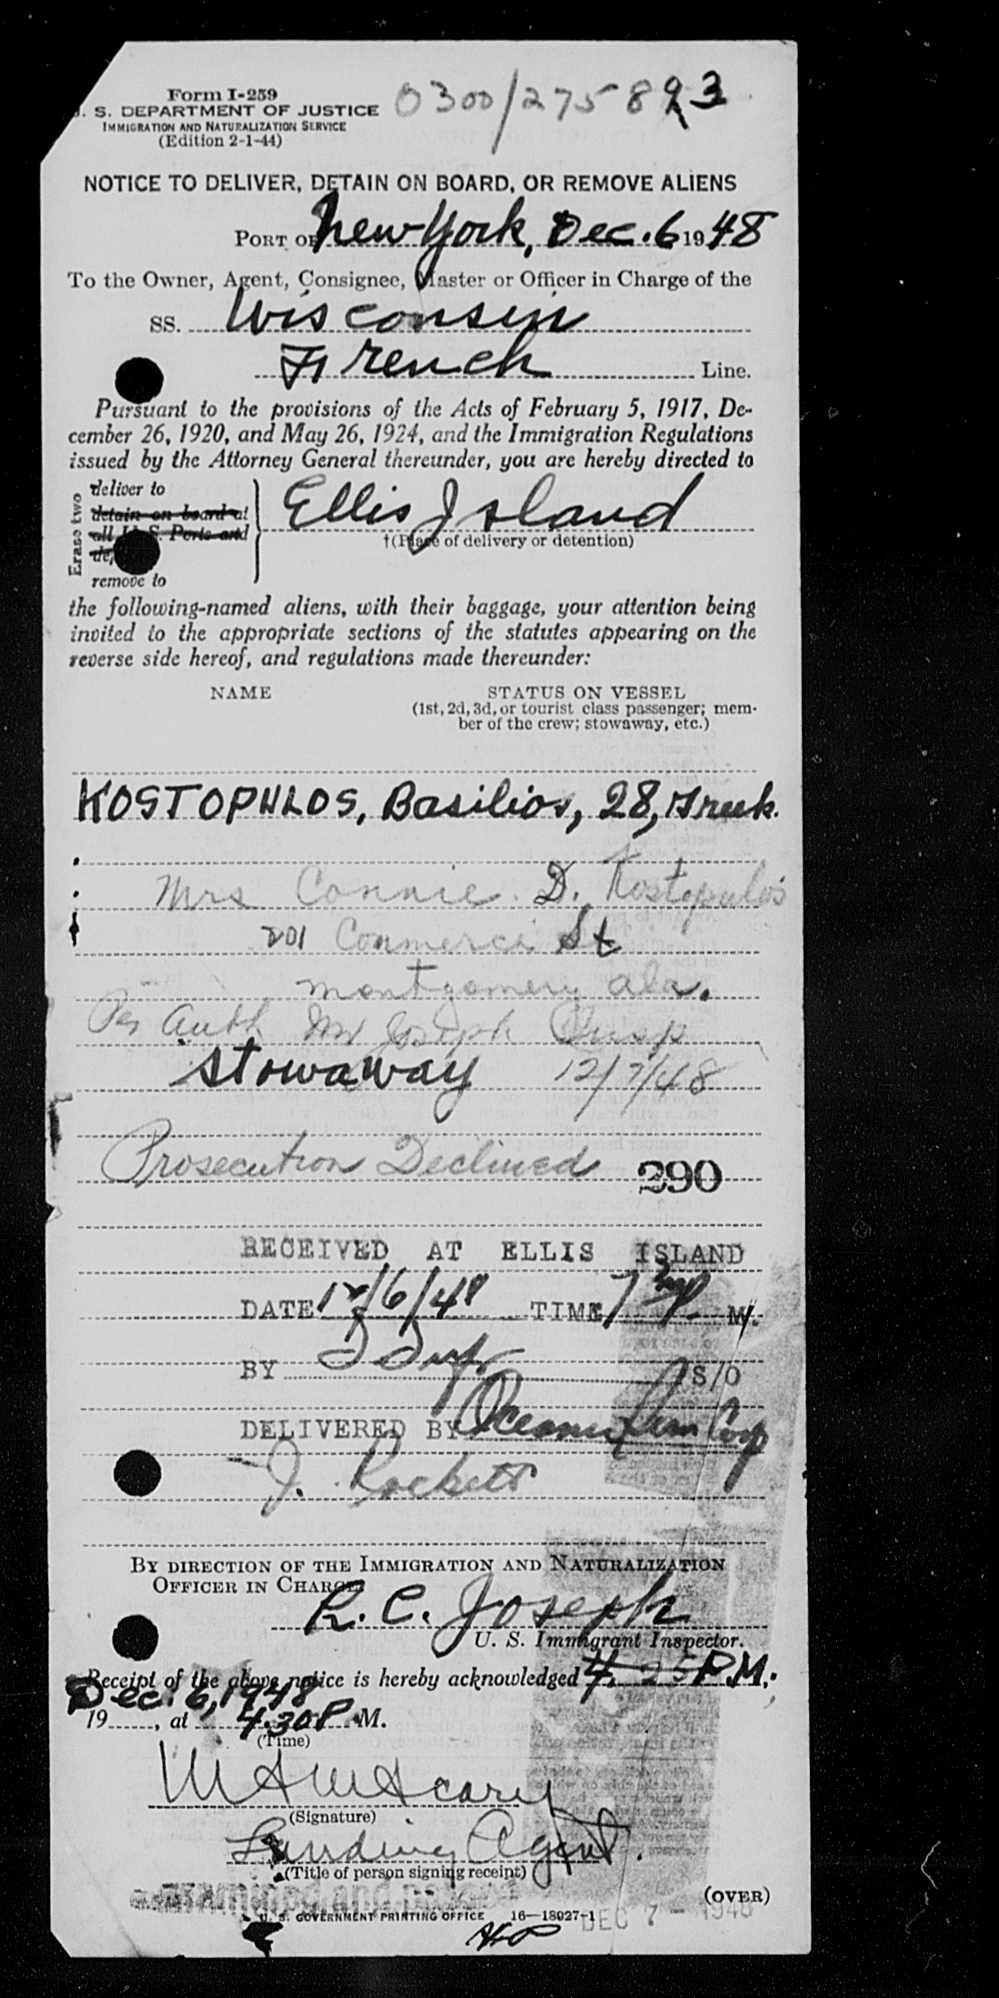 Form I-259
U. S. DEPARTMENT OF JUSTICE
IMMIGRATION AND NATURALIZATION SERVICE
(Edition 2-1-44)
0300/275893
NOTICE TO DELIVER, DETAIN ON BOARD, OR REMOVE ALIENS
PORT OF New York, Dec. 6 1948
To the Owner, Agent, Consignee, Master or Officer in Charge of the
SS. Wisconsin
French Line.
Pursuant to the provisions of the Acts of February 5, 1917, De-
cember 26, 1920, and May 26, 1924, and the Immigration Regulations
issued by the Attorney General thereunder, you are hereby directed to
Erase two
deliver to
detain on board at
all U. S. Ports and
remove to
Ellis Island
†(Place of delivery or detention)
the following-named aliens, with their baggage, your attention being
invited to the appropriate sections of the statutes appearing on the
reverse side hereof, and regulations made thereunder:
NAME
STATUS ON VESSEL
(1st, 2d, 3d, or tourist class passenger; mem-
ber of the crew; stowaway, etc.)
KOSTOPULOS, Basilios, 28, Greek.
Mrs Connie D. Kostopulos
201 Commerce St
Montgomery Ala.
Per Auth Mr Joseph
Stowaway 12/7/48
Prosecution Declined 290
RECEIVED AT ELLIS ISLAND
DATE 12/6/48 TIME 7 30 P M.
BY S/O
DELIVERED BY Corp
J. Rockett
BY DIRECTION OF THE IMMIGRATION AND NATURALIZATION
OFFICER IN CHARGE
R. C. Joseph
U. S. Immigrant Inspector.
Receipt of the above notice is hereby acknowledged 4.25 P.M.
Dec. 6, 1948
19......, at 4.30 P.M.
(Time)
(Signature)
Landing Agent.
(Title of person signing receipt)
(OVER)
U. S. GOVERNMENT PRINTING OFFICE 16—18027-1
DEC 7 - 1948